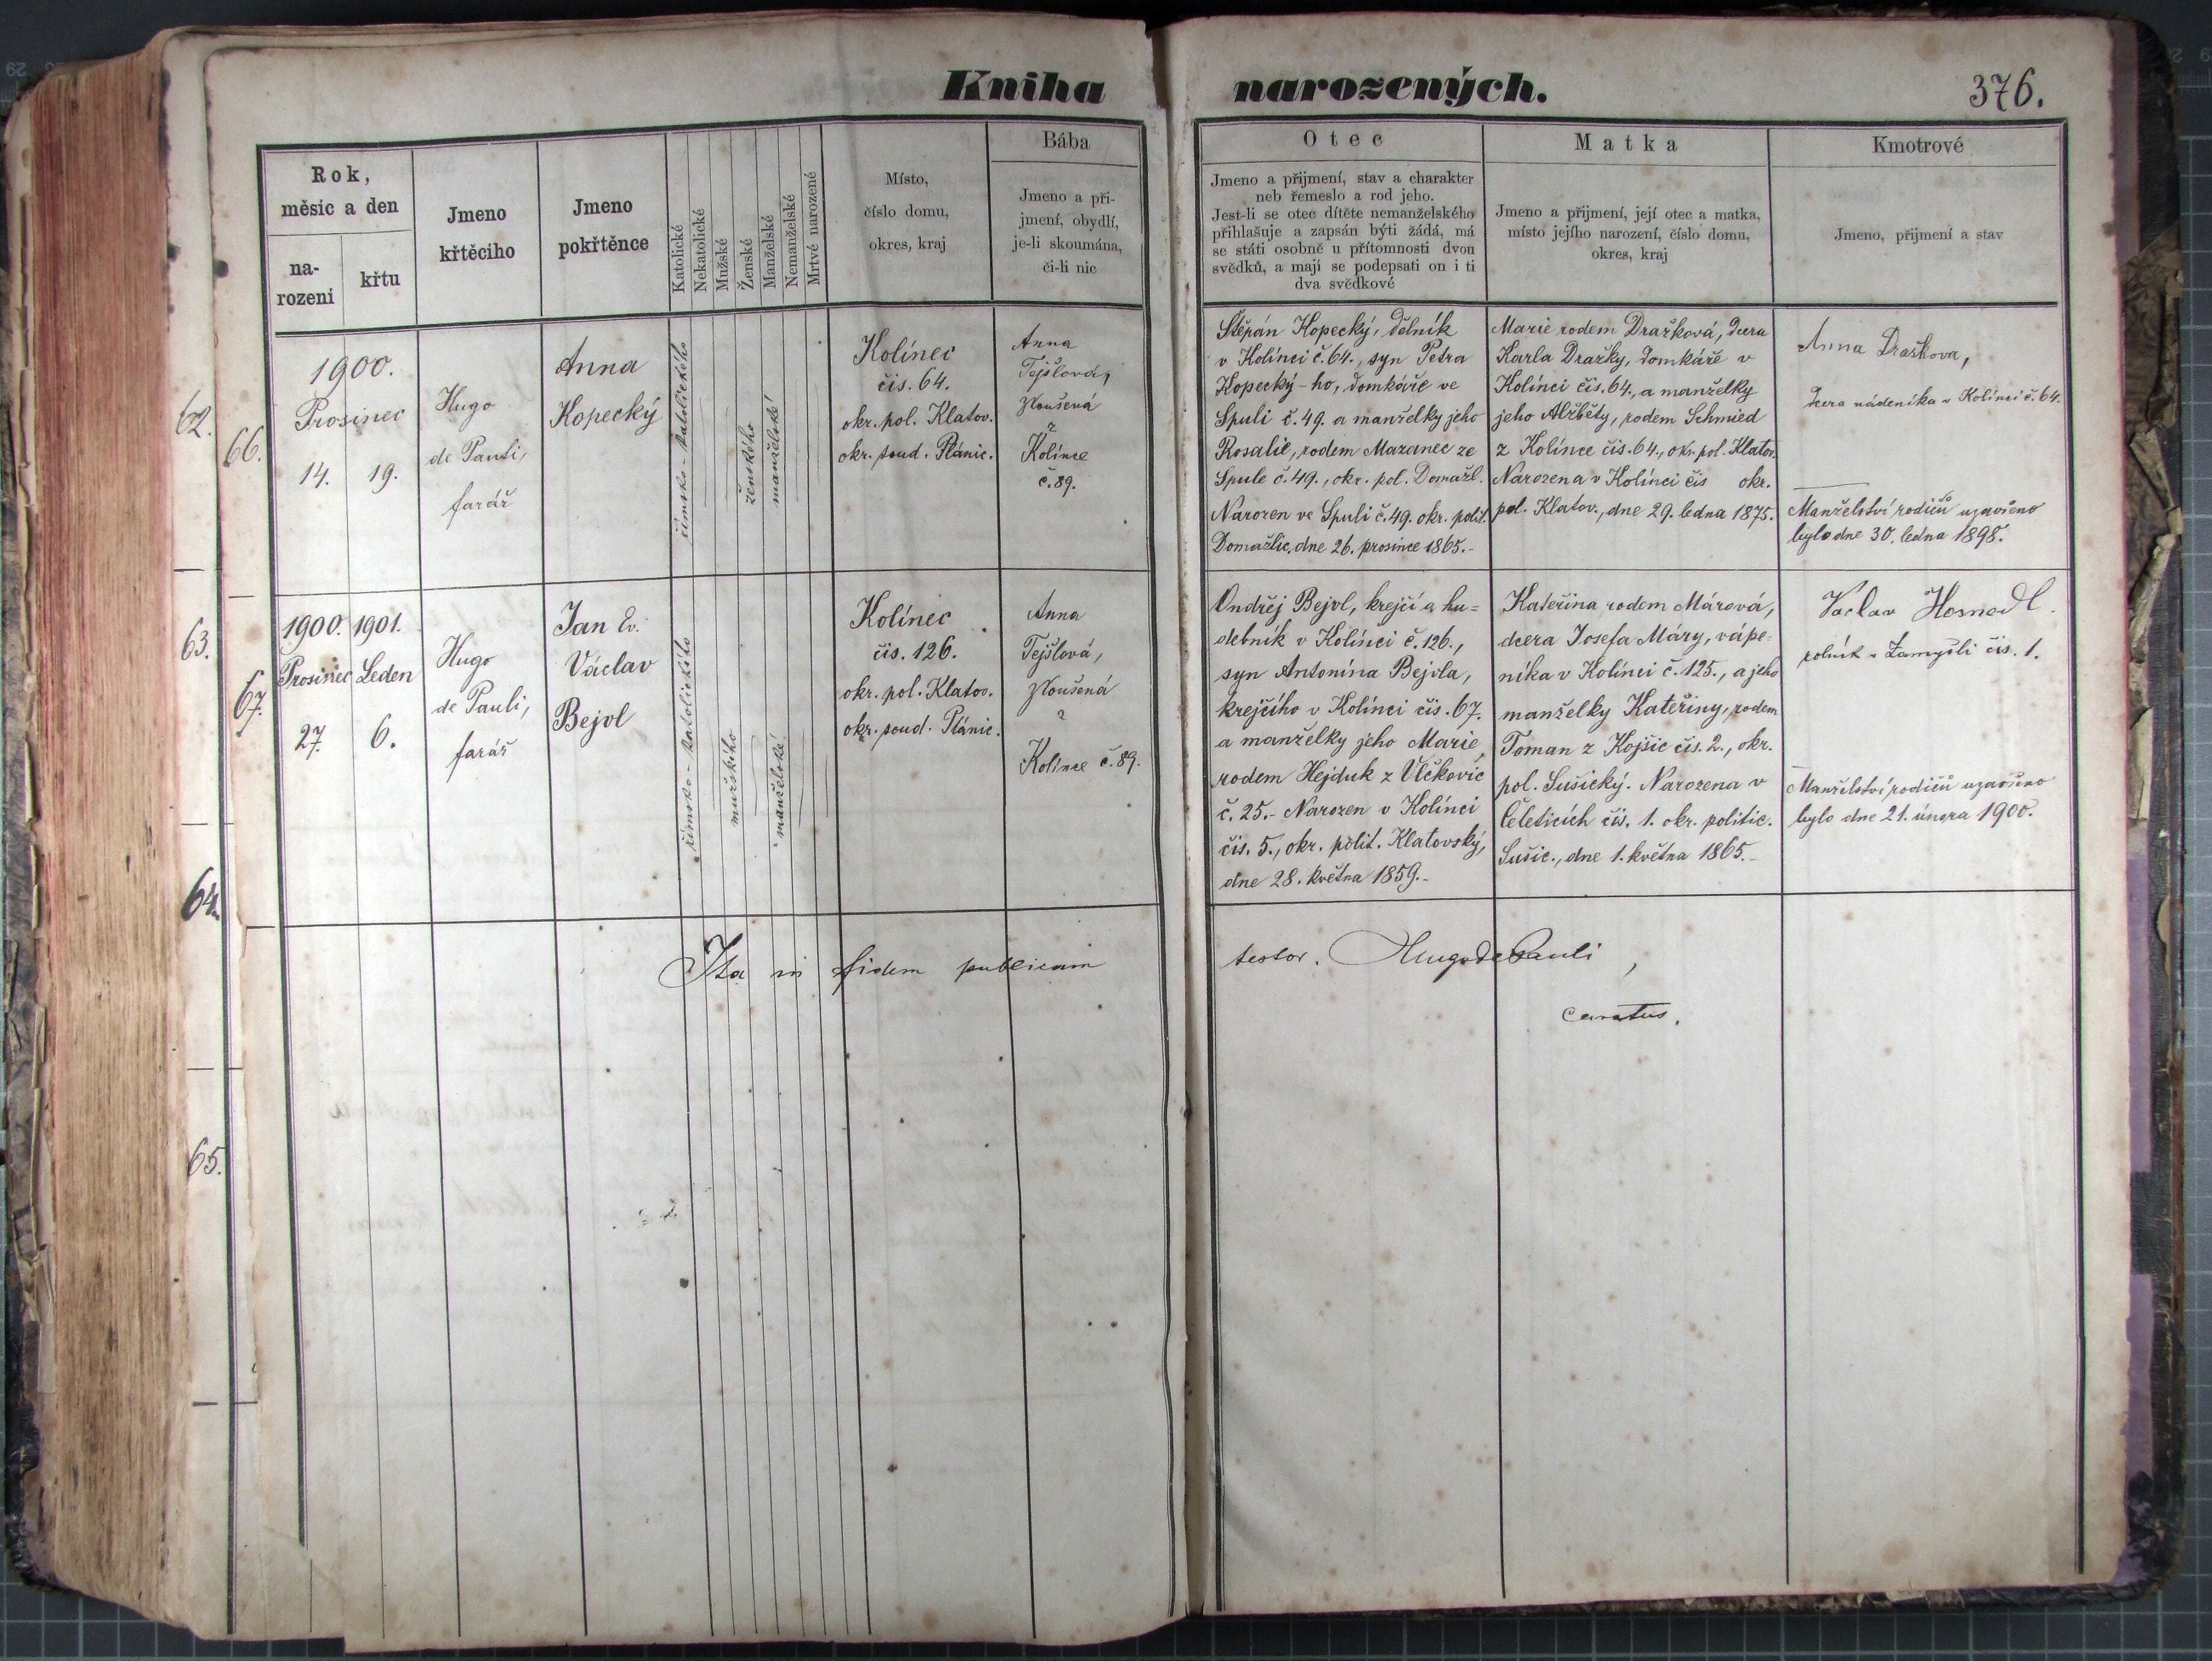 Kniha narozených.
376.
Rok,
měsíc a den
na-
rození
křtu
Jmeno
křtěcího
Jmeno
pokřtěnce
Katolické
Nekatolické
Mužské
Ženské
Manželské
Nemanželské
Mrtvé narozené
Místo,
číslo domu,
okres, kraj
Bába
Jmeno a pří-
jmení, obydlí,
je-li skoumána,
či-li nic
Otec
Jmeno a přijmení, stav a charakter
neb řemeslo a rod jeho.
Jest-li se otec dítěte nemanželského
přihlašuje a zapsán býti žádá, má
se státi osobně u přítomnosti dvou
svědků, a mají se podepsati on i ti
dva svědkové
Matka
Jmeno a přijmení, její otec a matka,
místo jejího narození, číslo domu,
okres, kraj
Kmotrové
Jmeno, přijmení a stav
62.
66.
1900.
Prosinec
14. 19.
Hugo
de Pauli,
farář
Anna
Kopecký
římsko-katolického
ženského
manželské
Kolínec
čís. 64.
okr. pol. Klatov.
okr. soud. Plánic.
Anna
Tejšlová,
zkoušená
z
Kolínce
č. 89.
Štěpán Kopecký, dělník
v Kolínci č. 64., syn Petra
Kopecký-ho, domkáře ve
Spuli č. 49. a manželky jeho
Rosalie, rodem Mazanec ze
Spule č. 49., okr. pol. Domažl.
Narozen ve Spuli č. 49. okr. polit.
Domažlic, dne 26. prosince 1865.-
Marie rodem Dražková, dcera
Karla Dražky, domkáře v
Kolínci čís. 64., a manželky
jeho Alžběty, rodem Schmied
z Kolínce čís. 64., okr. pol. Klatov.
Narozena v Kolínci čís okr.
pol. Klatov., dne 29. ledna 1875.
Anna Draškova,
dcera nádeníka v Kolínci č. 64.
Manželství rodičů uzavřeno
bylo dne 30. ledna 1898.
63.
67.
1900. 1901.
Prosinec Leden
27. 6.
Hugo
de Pauli,
farář
Jan Ev.
Václav
Bejvl
římsko-katolického
mužského
manželské
Kolínec
čís. 126.
okr. pol. Klatov.
okr. soud. Plánic.
Anna
Tejšlová,
zkoušená
z
Kolínce č. 89.
Ondřej Bejvl, krejčí a hu=
debník v Kolínci č. 126.,
syn Antonína Bejvla,
krejčího v Kolínci čís. 67.
a manželky jeho Marie,
rodem Hejduk z Vlčkovic
č. 25.- Narozen v Kolínci
čís. 5., okr. polit. Klatovský,
dne 28. května 1859.-
Kateřina rodem Márová,
dcera Josefa Máry, vápe=
níka v Kolínci č. 125., a jeho
manželky Kateřiny, rodem
Toman z Kojšic čís. 2., okr.
pol. Sušický. Narozena v
Čeleticích čís. 1. okr. politic.
Sušic., dne 1. května 1865.-
Vaclav Hosnedl.
rolník v Zamyšli čis. 1.
Manželství rodičů uzavřeno
bylo dne 21. února 1900.
64.
Ita in fidem publicam testor. Hugo de Pauli,
curatus.
65.